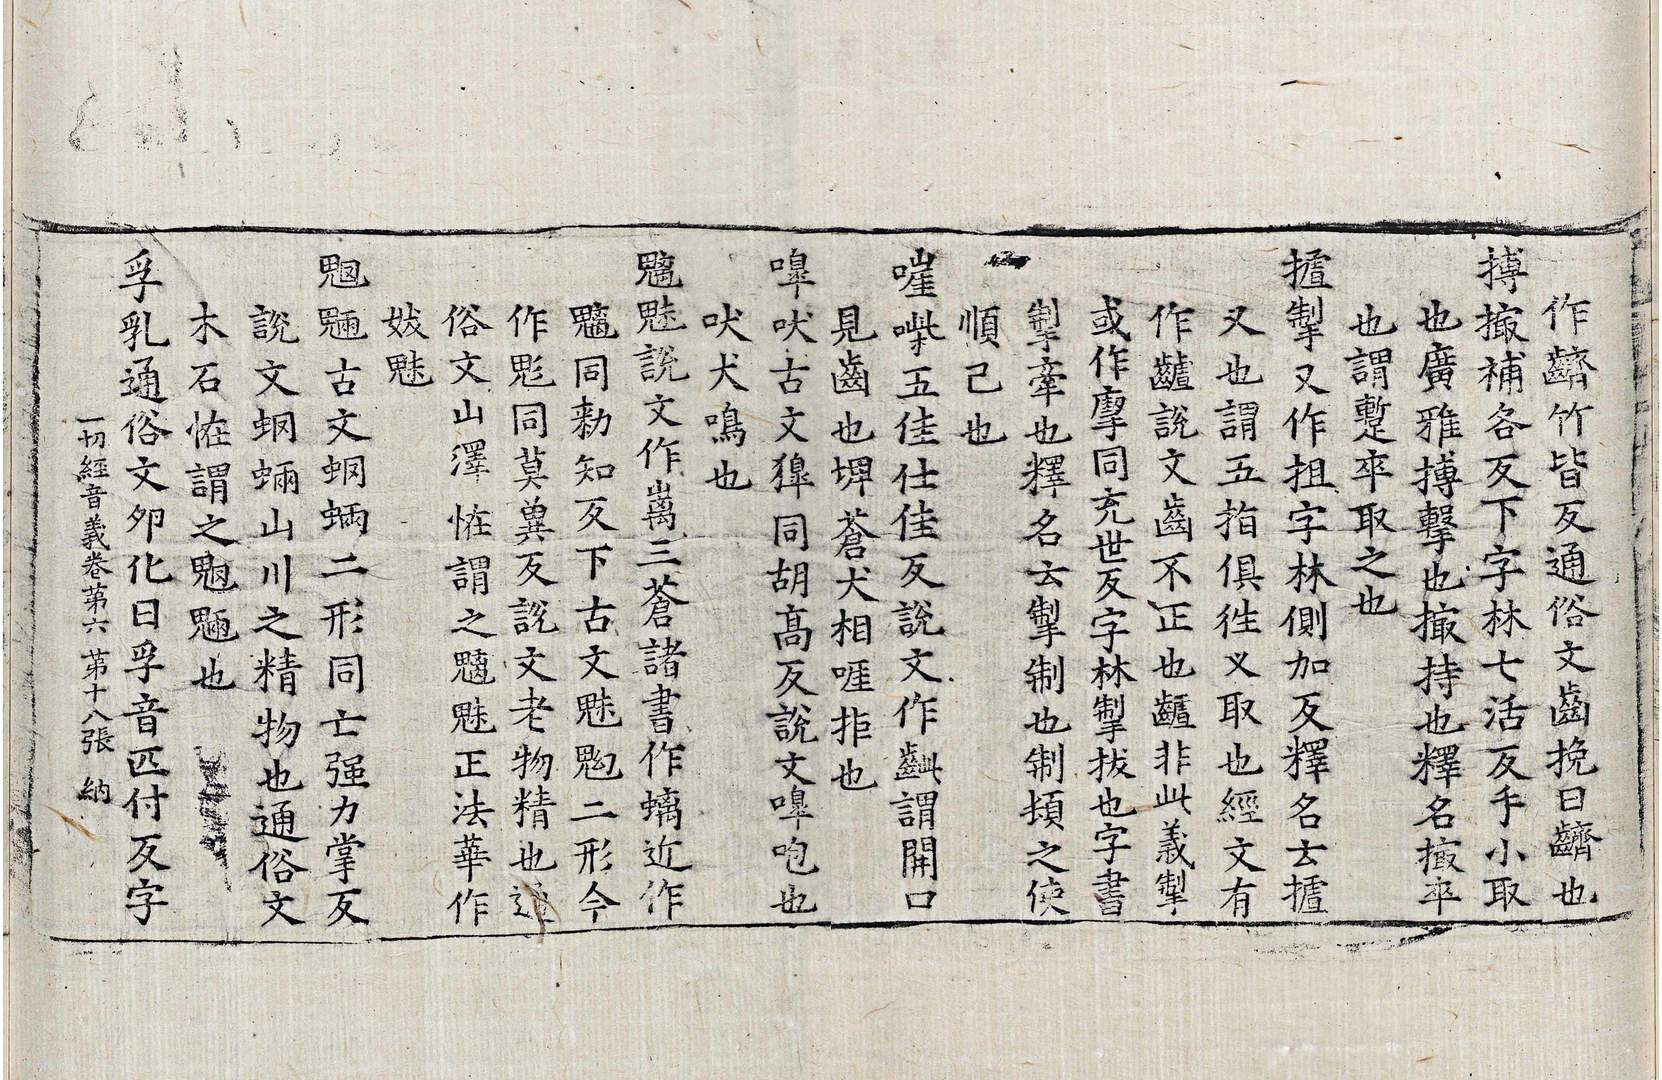 作齌竹皆反通俗文齒挽曰齌也
搏撮補各反下字林七活反手小取
也廣雅搏擊也撮持也釋名撮卒
也謂蹔卒取之也
摣掣又作抯字林側加反釋名云摣
叉也謂五指俱徃叉取也經文有
作齇說文齒不正也齇非此義掣
或作摩同充世反字林掣拔也字書
掣牽也釋名云掣制也制頓之使
順己也
嘊喍五佳仕佳反說文作齜謂開口
見齒也埤蒼犬相啀拒也
嘷吠古文獋同胡高反說文嘷咆也
吠犬鳴也
魑魅說文作离三蒼諸書作螭近作
魑同勑知反下古文魅鬽二形今
作鬽同莫兾反說文老物精也通
俗文山澤恠謂之魑魅正法華作
妭魅
魍魎古文蛧蜽二形同亡强力掌反
說文蛧蜽山川之精物也通俗文
木石恠謂之魍魎也
孚乳通俗文卵化曰孚音匹付反字
一切經音義卷第六 第十八張 納